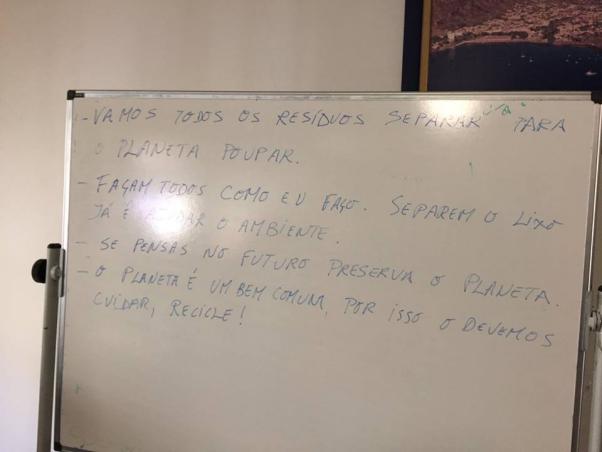 - VAMOS TODOS OS RESÍDUOS SEPARAR PARA
O PLANETA POUPAR.
- FAÇAM TODOS COMO EU FAÇO. SEPAREM O LIXO
JÁ É AJUDAR O AMBIENTE.
- SE PENSAS NO FUTURO PRESERVA O PLANETA.
- O PLANETA É UM BEM COMUM, POR ISSO O DEVEMOS
CUIDAR, RECICLE!